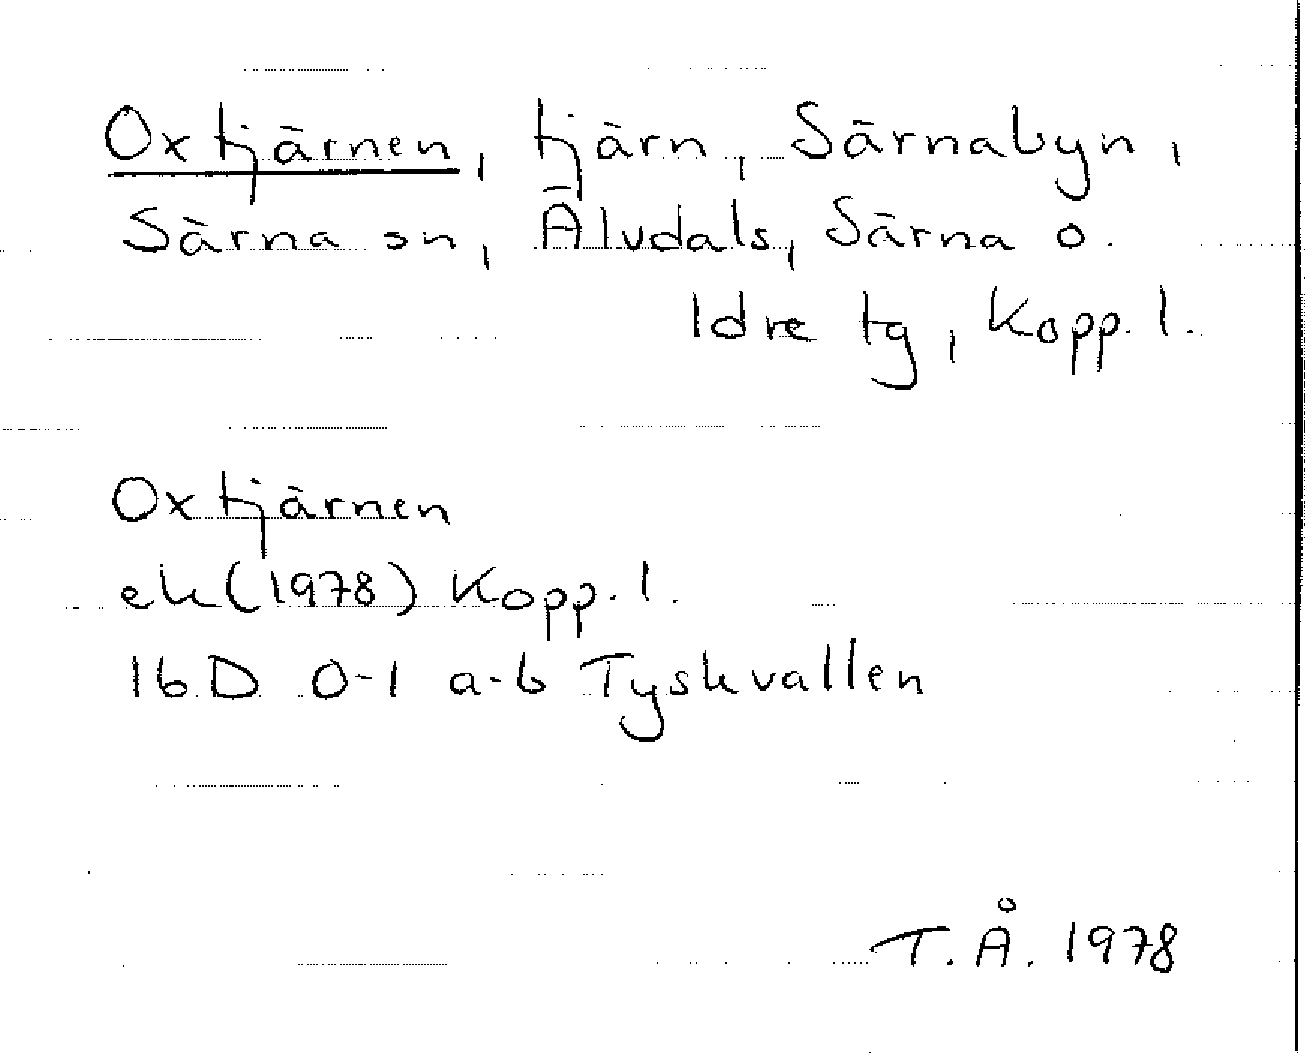 Oxtjärnen, tjärn, Särnabyn,
Särna sn, Älvdals, Särna o.
Idre tg, Kopp. l.
Oxtjärnen
ek (1978) Kopp. l.
16 D 0-1 a-b Tyskvallen
T. Å. 1978